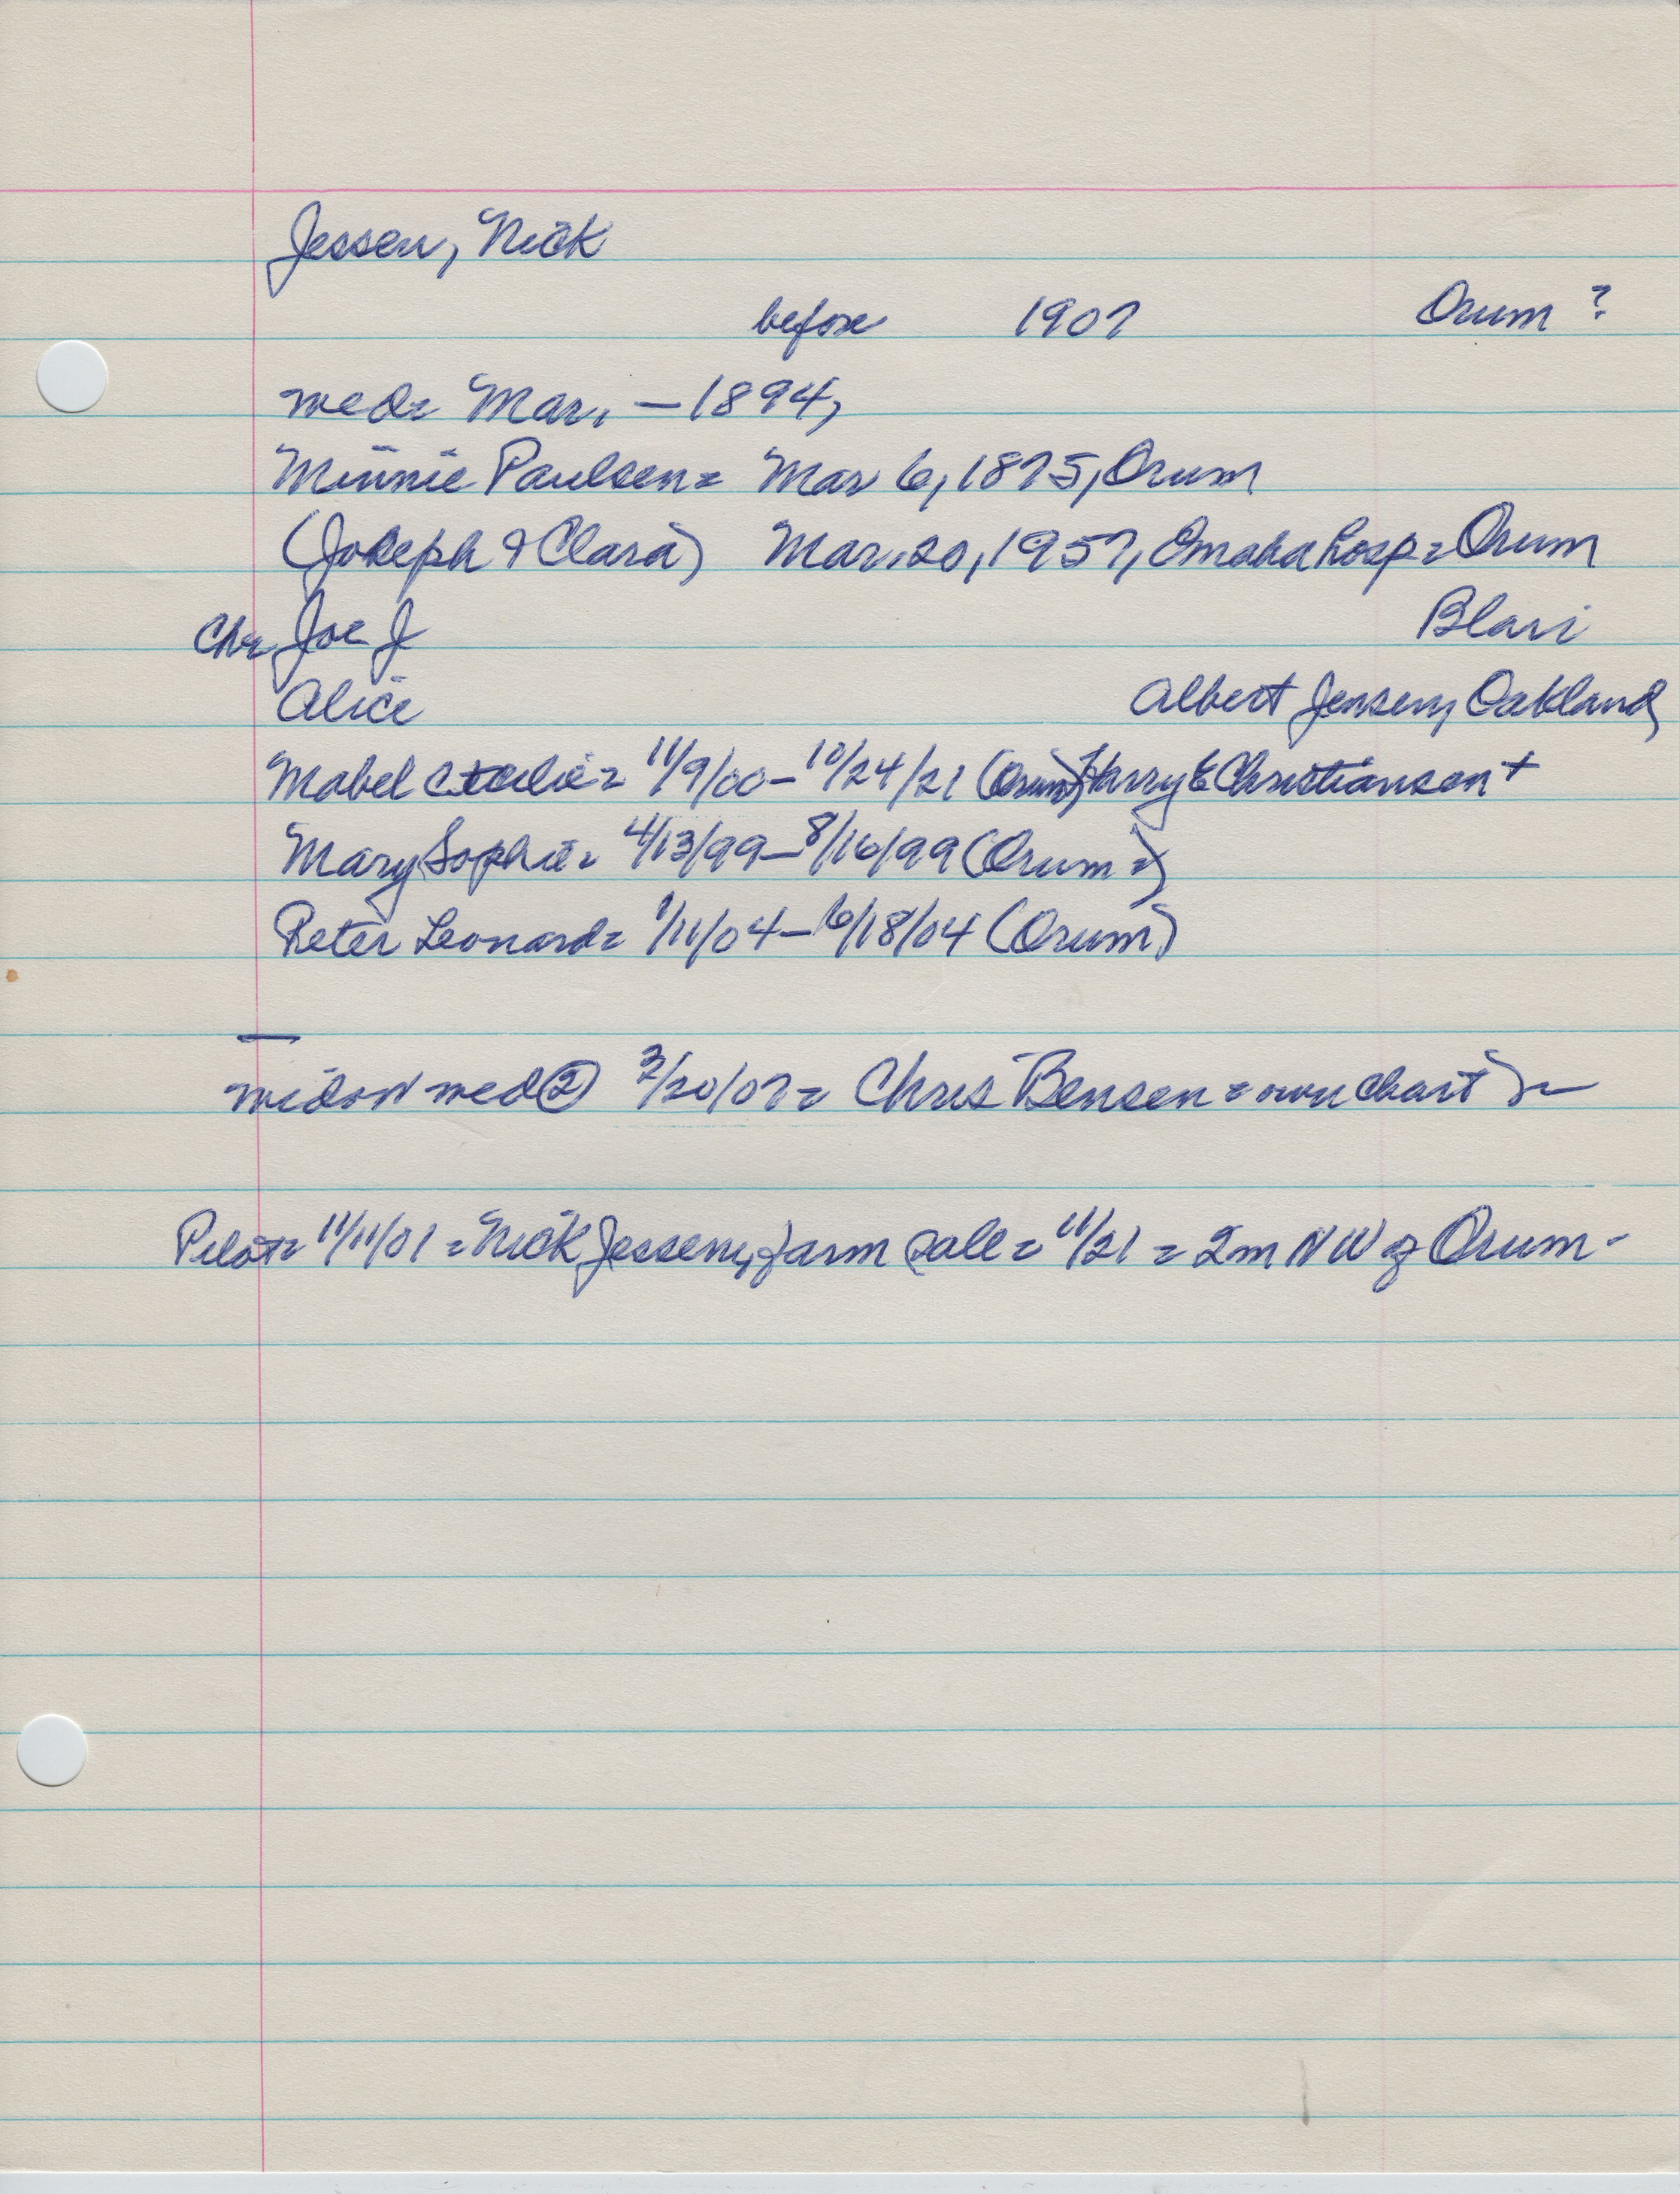 Jessen, Nick
before 1907 Orum ?
wed= Mar. - 1894,
Minnie Paulsen= Mar 6, 1875, Orum
(Joseph & Clara) Mar. 20, 1957, Omaha hosp = Orum
Ch= Joe J Blair
Alice Albert Jensen, Oakland
Mabel Cecelie= 11/9/00 - 10/24/21 (Orum) Harry E Christiansen +
Mary Sophie= 4/13/99 - 8/16/99 (Orum =)
Peter Leonard= 1/11/04 - 6/18/04 (Orum)
—
widow wed ② /20/07= Chris Bensen = own chart
Pilot= 11/11/01 = Nick Jessen, farm sale = 11/21 = 2m NW of Orum -